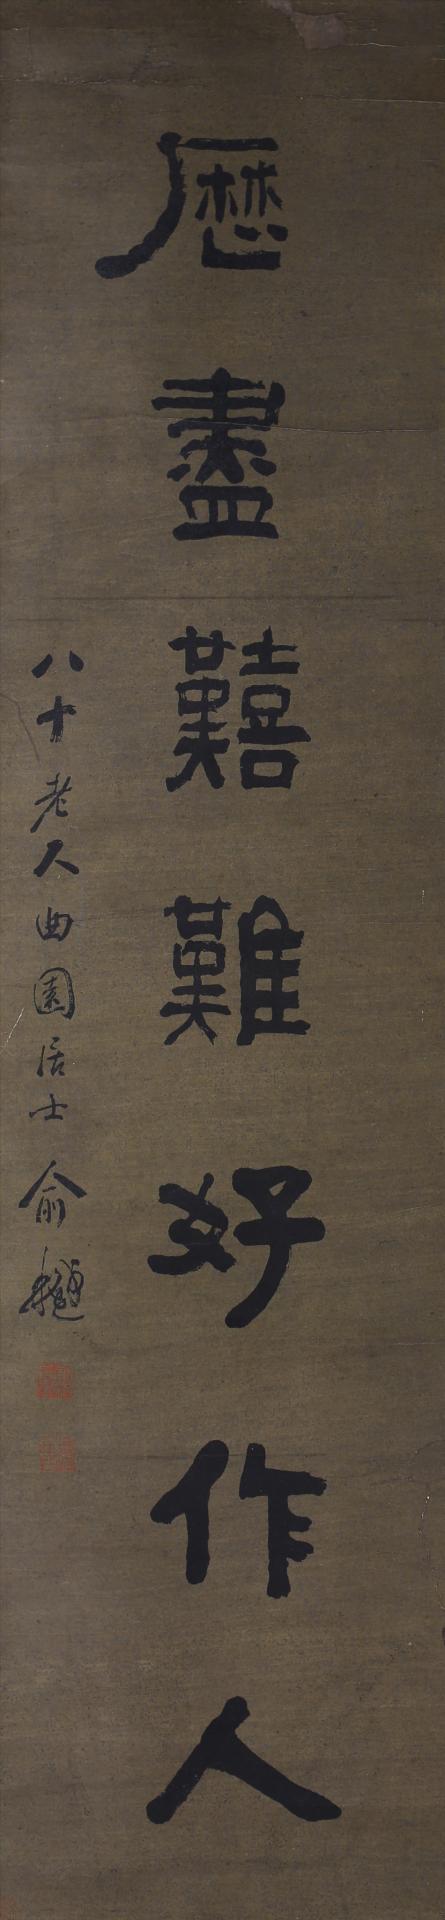 歷盡囏難好作人
八十老人曲園居士俞樾